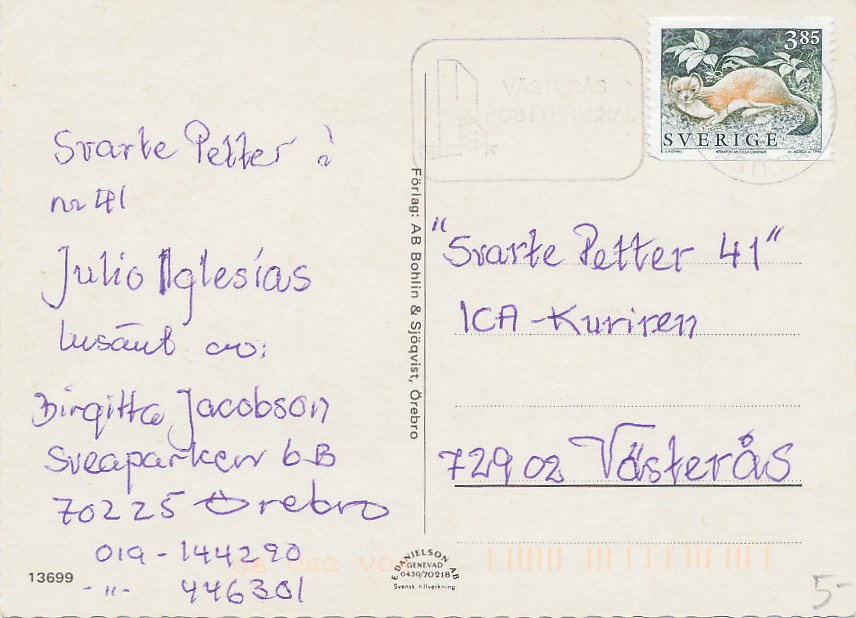 Svarte Petter i
nr 41
Julio Iglesías
Insänt av:
Birgitta Jacobson
Sveaparken 6B
70225 Örebro
019-144290
-"- 446301
13699
Förlag: AB Bohlin & Sjöqvist, Örebro
E DANIELSON AB
GENEVAD
0430/70218
Svensk tillverkning
VÄSTERÅS
3.85
SVERIGE
"Svarte Petter 41"
ICA-Kuriren
72902 Västerås
5-